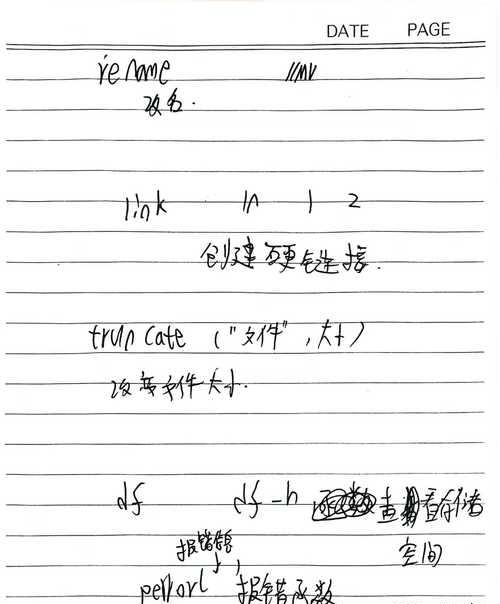 DATE PAGE
rename //mv
改名.
link ln 1 2
创建硬链接.
truncate ("文件", 大小)
改变文件大小.
df df -h 查看存储
空间
报错
perror( 报错函数